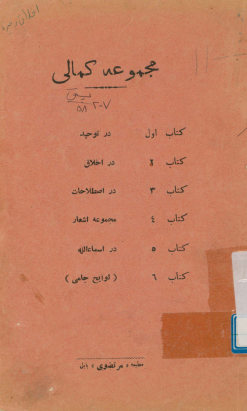 مجموعه کمالی
۲۰۷
کتاب اول در توحید
کتاب ۲ در اخلاق
کتاب ۳ در اصطلاحات
کتاب ٤ مجموعه اشعار
کتاب ٥ در اسماءالله
کتاب ٦ ( لوایح جامی )
مطبعه « مرتضوی »